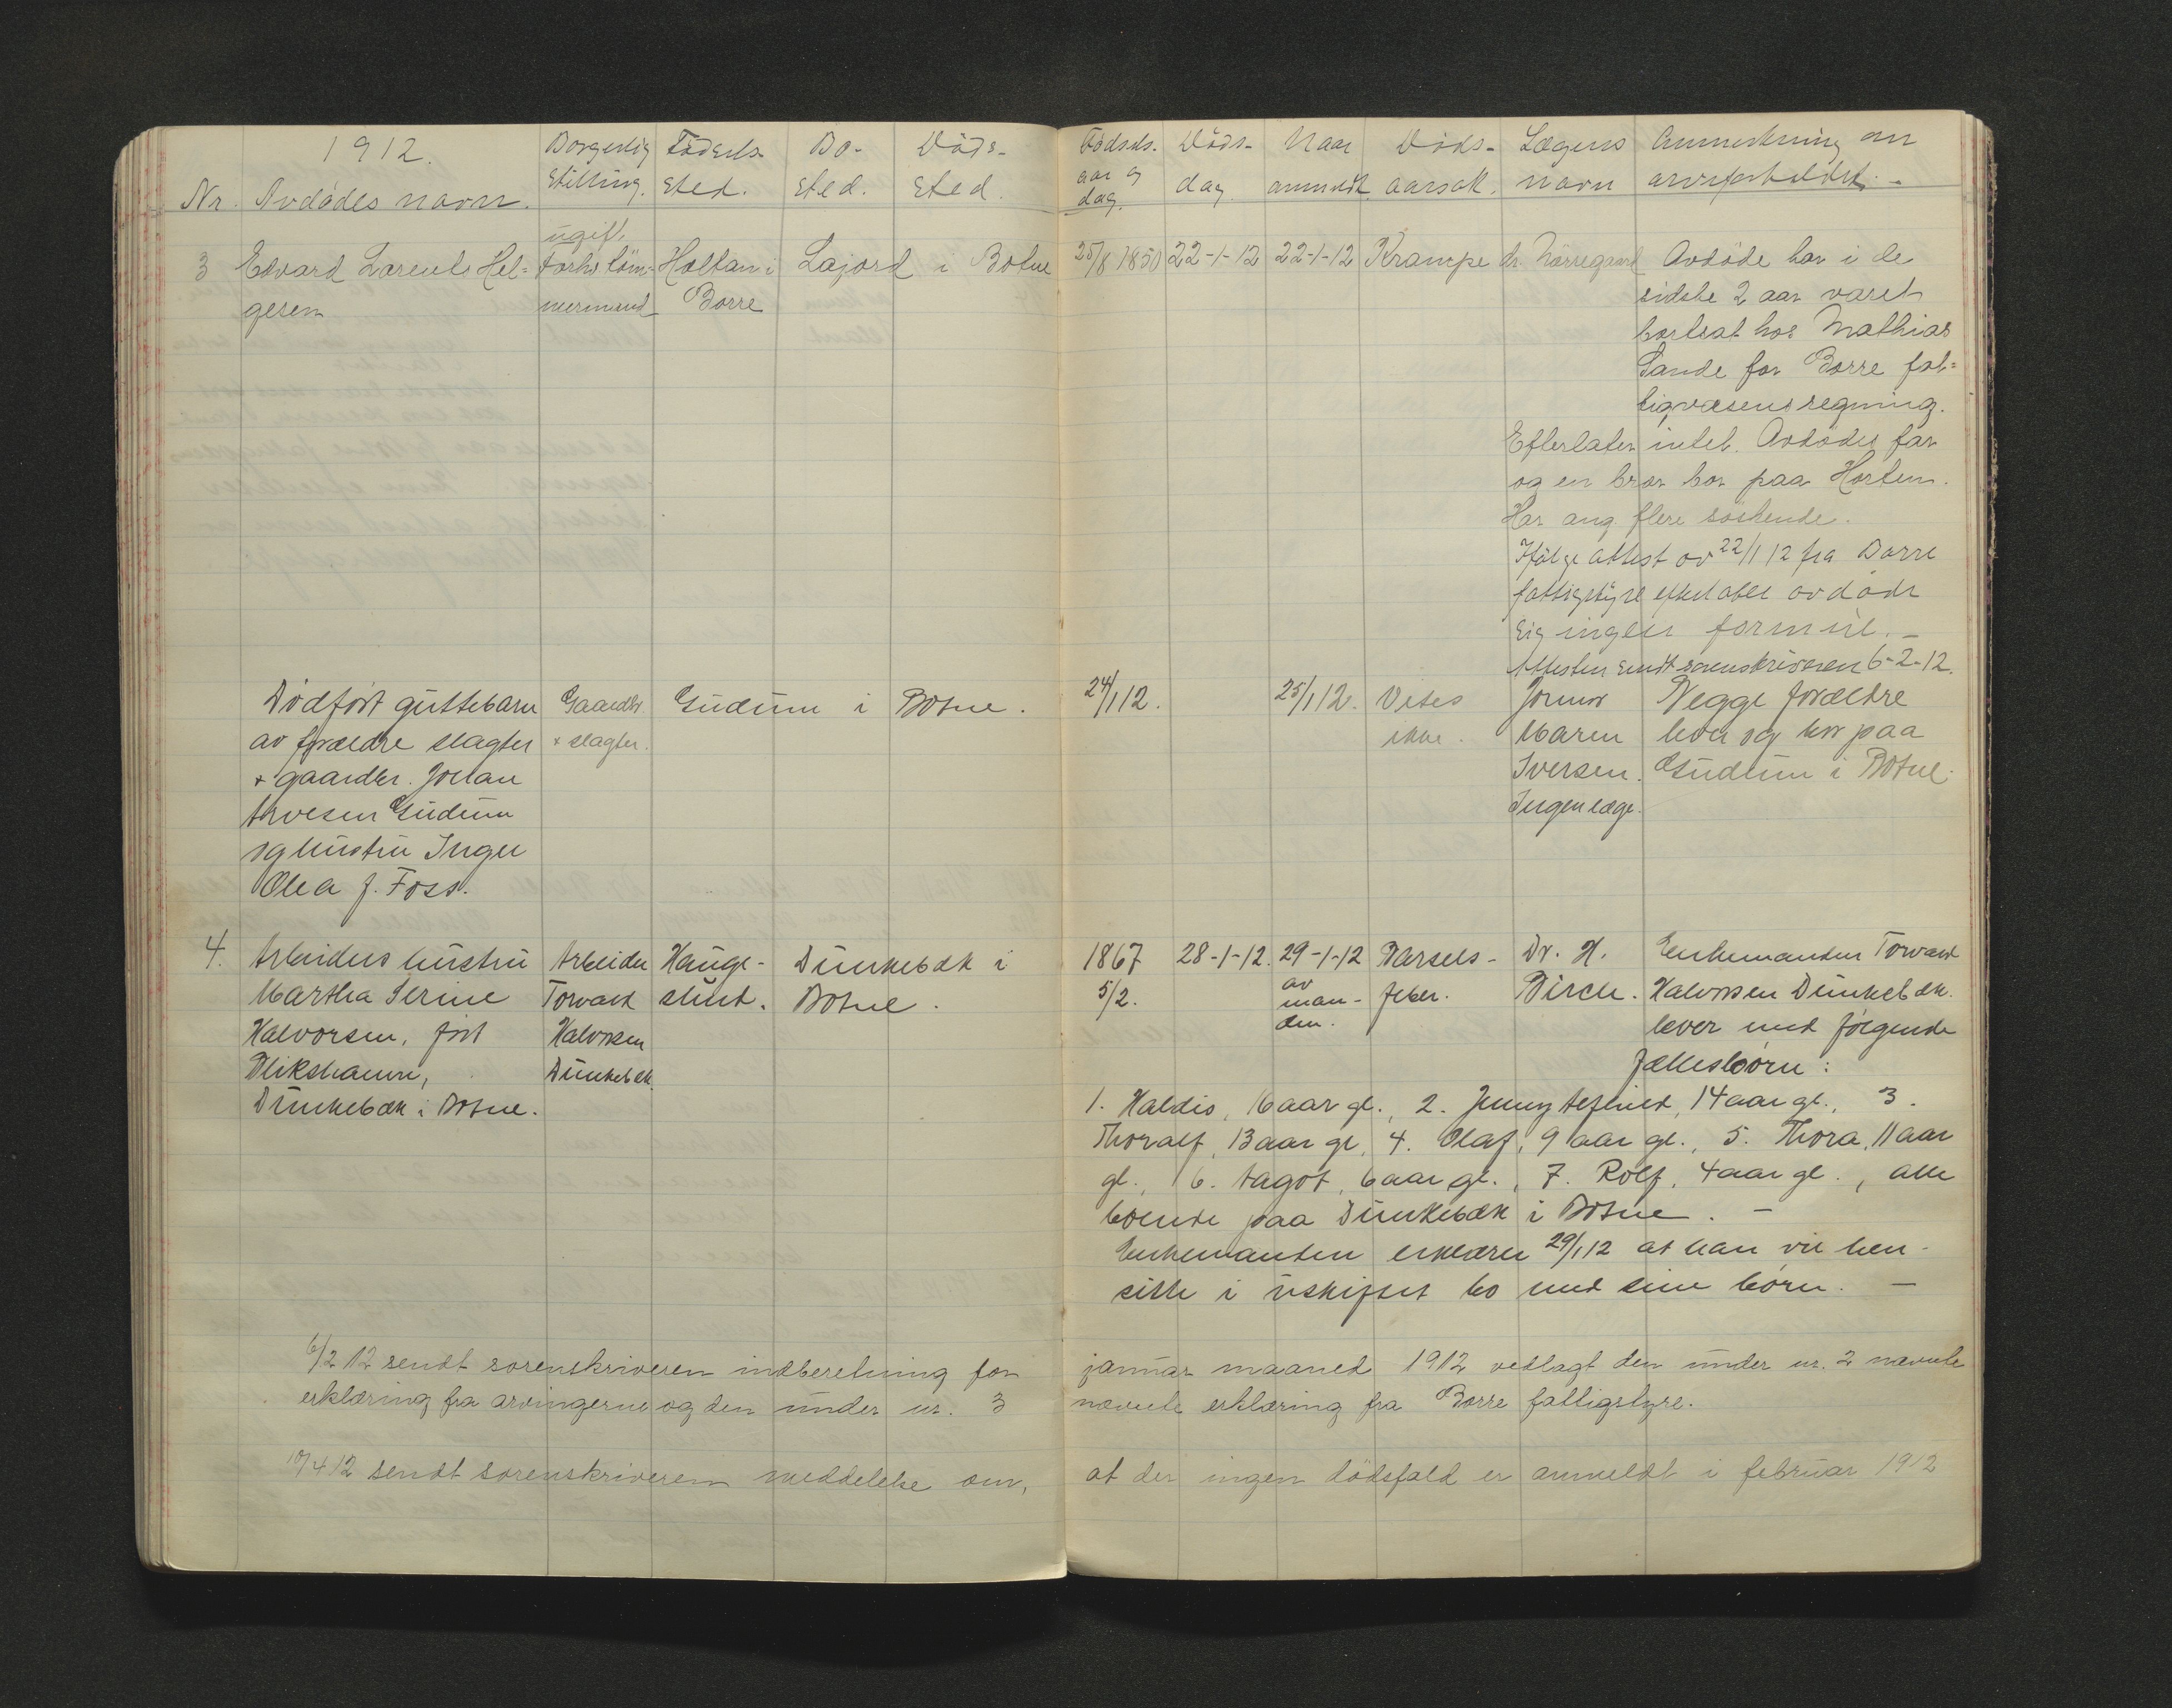 1912.
Nr. Avdødes navn.
Borgerlig stilling.
Fødsels- sted.
Bo- sted.
Døds- sted.
Fødsels- aar og dag.
Døds- dag.
Naar anmeldt.
Døds- aarsak.
Lægens navn
Anmerkning om arveforholdet.-
3 Edvard Laurents Hel=
gesen
ugift,
tømmermand
Holtan i
Borre
Lajord i Botne
25/8 1850
22-1-12
22-1-12
Krampe
dr. Nørregaard
Avdøde har i de
sidste 2 aar været
bortsat hos Mathias
Sande for Borre fat=
tigvæsens regning.
Efterlater intet. Avdødes far
og en bror bor paa Horten.
Har ang. flere søskende.
Ifølge attest av 22/1 12 fra Borre
fattigstyre efterlater avdøde
sig ingen formue. -
Attesten sendt sorenskriveren 6-2-12.
Dødfødt guttebarn
av forældre slagter
+ gaardbr. Johan
Arvesen Gudum
og hustru Inger
Olea f. Foss.
Gaardbr.
+ slagter.
Gudum i Botne.
24/1 12.
25/1 12.
Vites
ikke.
Jormor
Maren
Iversen.
Ingen læge.
Begge forældre
lever og bor paa
Gudum i Botne.
4. Arbeiders hustru
Martha Serine
Halvorsen, født
Blikshavn,
Dunkebæk i Botne.
Arbeider
Torvald
Halvorsen
Dunkebæk.
Hauge-
sund.
Dunkebæk i
Botne.
1867
5/2.
28-1-12.
29-1-12
av
man-
den.
Barsels-
feber.
Dr. H.
Birch.
Enkemanden Torvald
Halvorsen Dunkebæk.
lever med følgende
fællesbørn:
1. Haldis, 16 aar gl., 2. Jenny, 14 aar gl., 3.
Thoralf, 13 aar gl, 4. Olaf, 9 aar gl., 5. Thora, 11 aar
gl., 6. Aagot, 6 aar gl., 7. Rolf, 4 aar gl., alle
boende paa Dunkebæk i Botne. -
Enkemanden erklærer 29/1 12 at han vil hen-
sitte i uskiftet bo med sine børn. -
6/2 12 sendt sorenskriveren indberetning for januar maaned 1912 vedlagt den under nr. 2 nævnte
erklæring fra arvingerne og den under nr. 3 nævnte erklæring fra Borre fattigstyre.
10/4 12 sendt sorenskriveren meddelelse om, at der ingen dødsfald er anmeldt i februar 1912